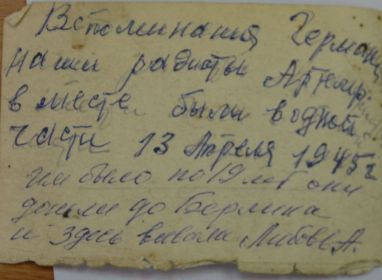 Вспоминания Герман
наши радисты Артём
в месте были в одной
части 13 Апреля 1945 г
им было по 19 лет они
дошли до Берлина
и здесь